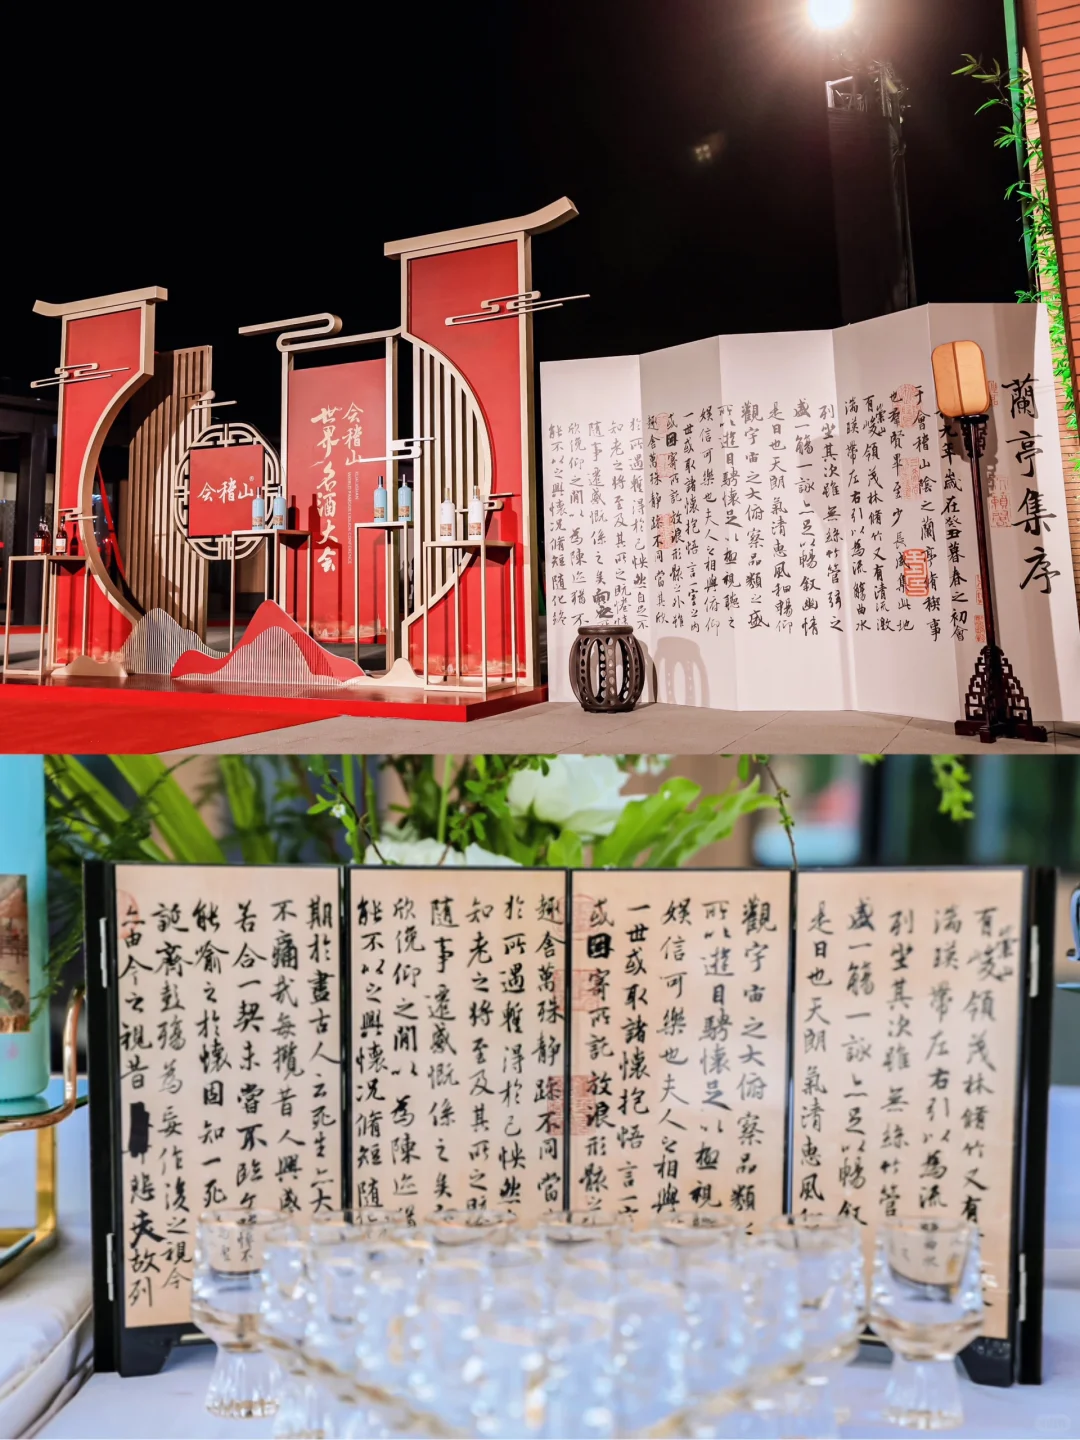 会稽山
会稽山
世界名酒大会
蘭亭集序
九年歲在癸丑暮春之初會
于會稽山陰之蘭亭脩稧事
也羣賢畢至少長咸集此地
有崇山峻領茂林脩竹又有清流激
湍暎帶左右引以為流觴曲水
列坐其次雖無絲竹管弦之
盛一觴一詠亦足以暢敘幽情
是日也天朗氣清惠風和暢仰
觀宇宙之大俯察品類之盛
所以遊目騁懷足以極視聽之
娛信可樂也夫人之相與俯仰
一世或取諸懷抱悟言一室之內
或因寄所託放浪形骸之外雖
趣舍萬殊靜躁不同當其欣
於所遇蹔得於己怏然自足不
知老之將至及其所之既惓情
隨事遷感慨係之矣向之
欣俛仰之間以為陳迹猶不
能不以之興懷況脩短隨化終
有崇山峻領茂林脩竹又有
湍暎帶左右引以為流
列坐其次雖無絲竹管
盛一觴一詠亦足以暢敘
是日也天朗氣清惠風和
觀宇宙之大俯察品類
所以遊目騁懷足以極視
娛信可樂也夫人之相與
一世或取諸懷抱悟言一
或因寄所託放浪形骸之
趣舍萬殊靜躁不同當
於所遇蹔得於己怏然
知老之將至及其所之既
隨事遷感慨係之矣向
欣俛仰之間以為陳迹猶
能不以之興懷況脩短隨
期於盡古人云死生亦大
不痛哉每攬昔人興感
若合一契未嘗不臨文
能喻之於懷固知一死
誕齊彭殤為妄作後之視今
亦由今之視昔悲夫故列